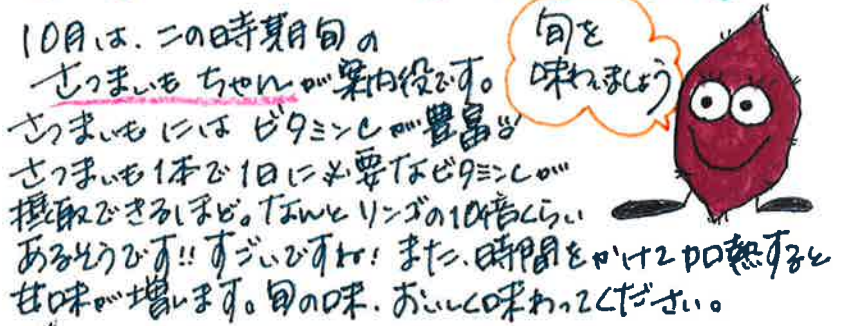 10月は、この時期旬の
さつまいもちゃんが案内役です。
旬を
味わいましょう
さつまいもにはビタミンCが豊富で
さつまいも1本で1日に必要なビタミンCが
摂取できるほど。なんとリンゴの10倍くらい
あるそうです!!すごいですね!また、時間をかけて加熱すると
甘味が増します。旬の味、おいしく味わってください。